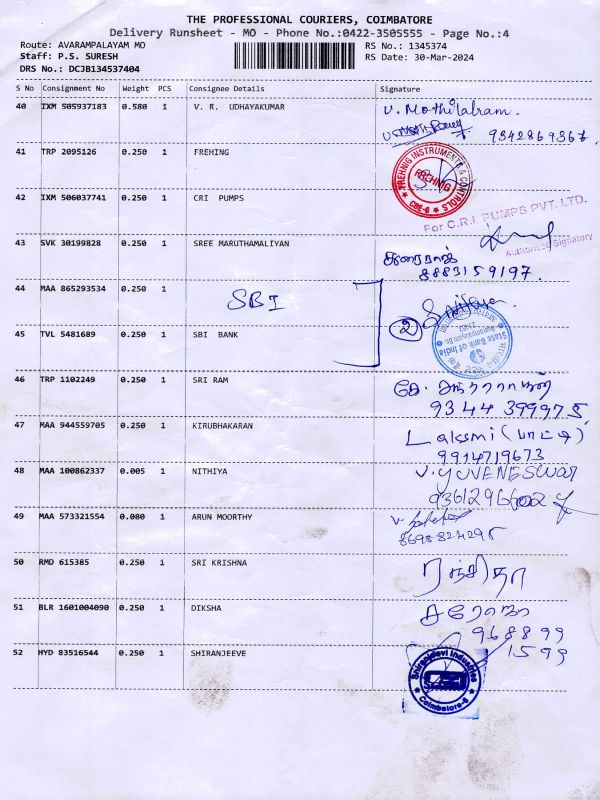 THE PROFESSIONAL COURIERS, COIMBATORE
Delivery Runsheet - MO - Phone No.:0422-3505555 - Page No.:4
Route: AVARAMPALAYAM MO
RS No.: 1345374
Staff: P.S. SURESH
RS Date: 30-Mar-2024
DRS No.: DCJB134537404
S No Consignment No Weight PCS Consignee Details Signature
40 IXM 505937183 0.580 1 V. R. UDHAYAKUMAR V. Mothilalram.
9342869367.
41 TRP 2095126 0.250 1 FREHING
FREHNIG INSTRUMENTS & CONTROLS
FREHNIG
CBE-6
42 IXM 506037741 0.250 1 CRI PUMPS
For C.R.I. PUMPS PVT. LTD.
Authorized Signatory
43 SVK 30199828 0.250 1 SREE MARUTHAMALIYAN துரைராஜ்
8883159197.
44 MAA 865293534 0.250 1 SBI
2
45 TVL 5481689 0.250 1 SBI BANK
State Bank of India
46 TRP 1102249 0.250 1 SRI RAM
9344 399975
47 MAA 944559705 0.250 1 KIRUBHAKARAN Lakssmi (பாட்டி)
9914719673
48 MAA 100862337 0.005 1 NITHIYA V. YUVENESWAR
49 MAA 573321554 0.080 1 ARUN MOORTHY
8698824295
50 RMD 615385 0.250 1 SRI KRISHNA ரஞ்சிதா
51 BLR 1601004090 0.250 1 DIKSHA
968899
1599
52 HYD 83516544 0.250 1 SHIRANJEEVE
Shiranjdevi Industries
Coimbatore-6